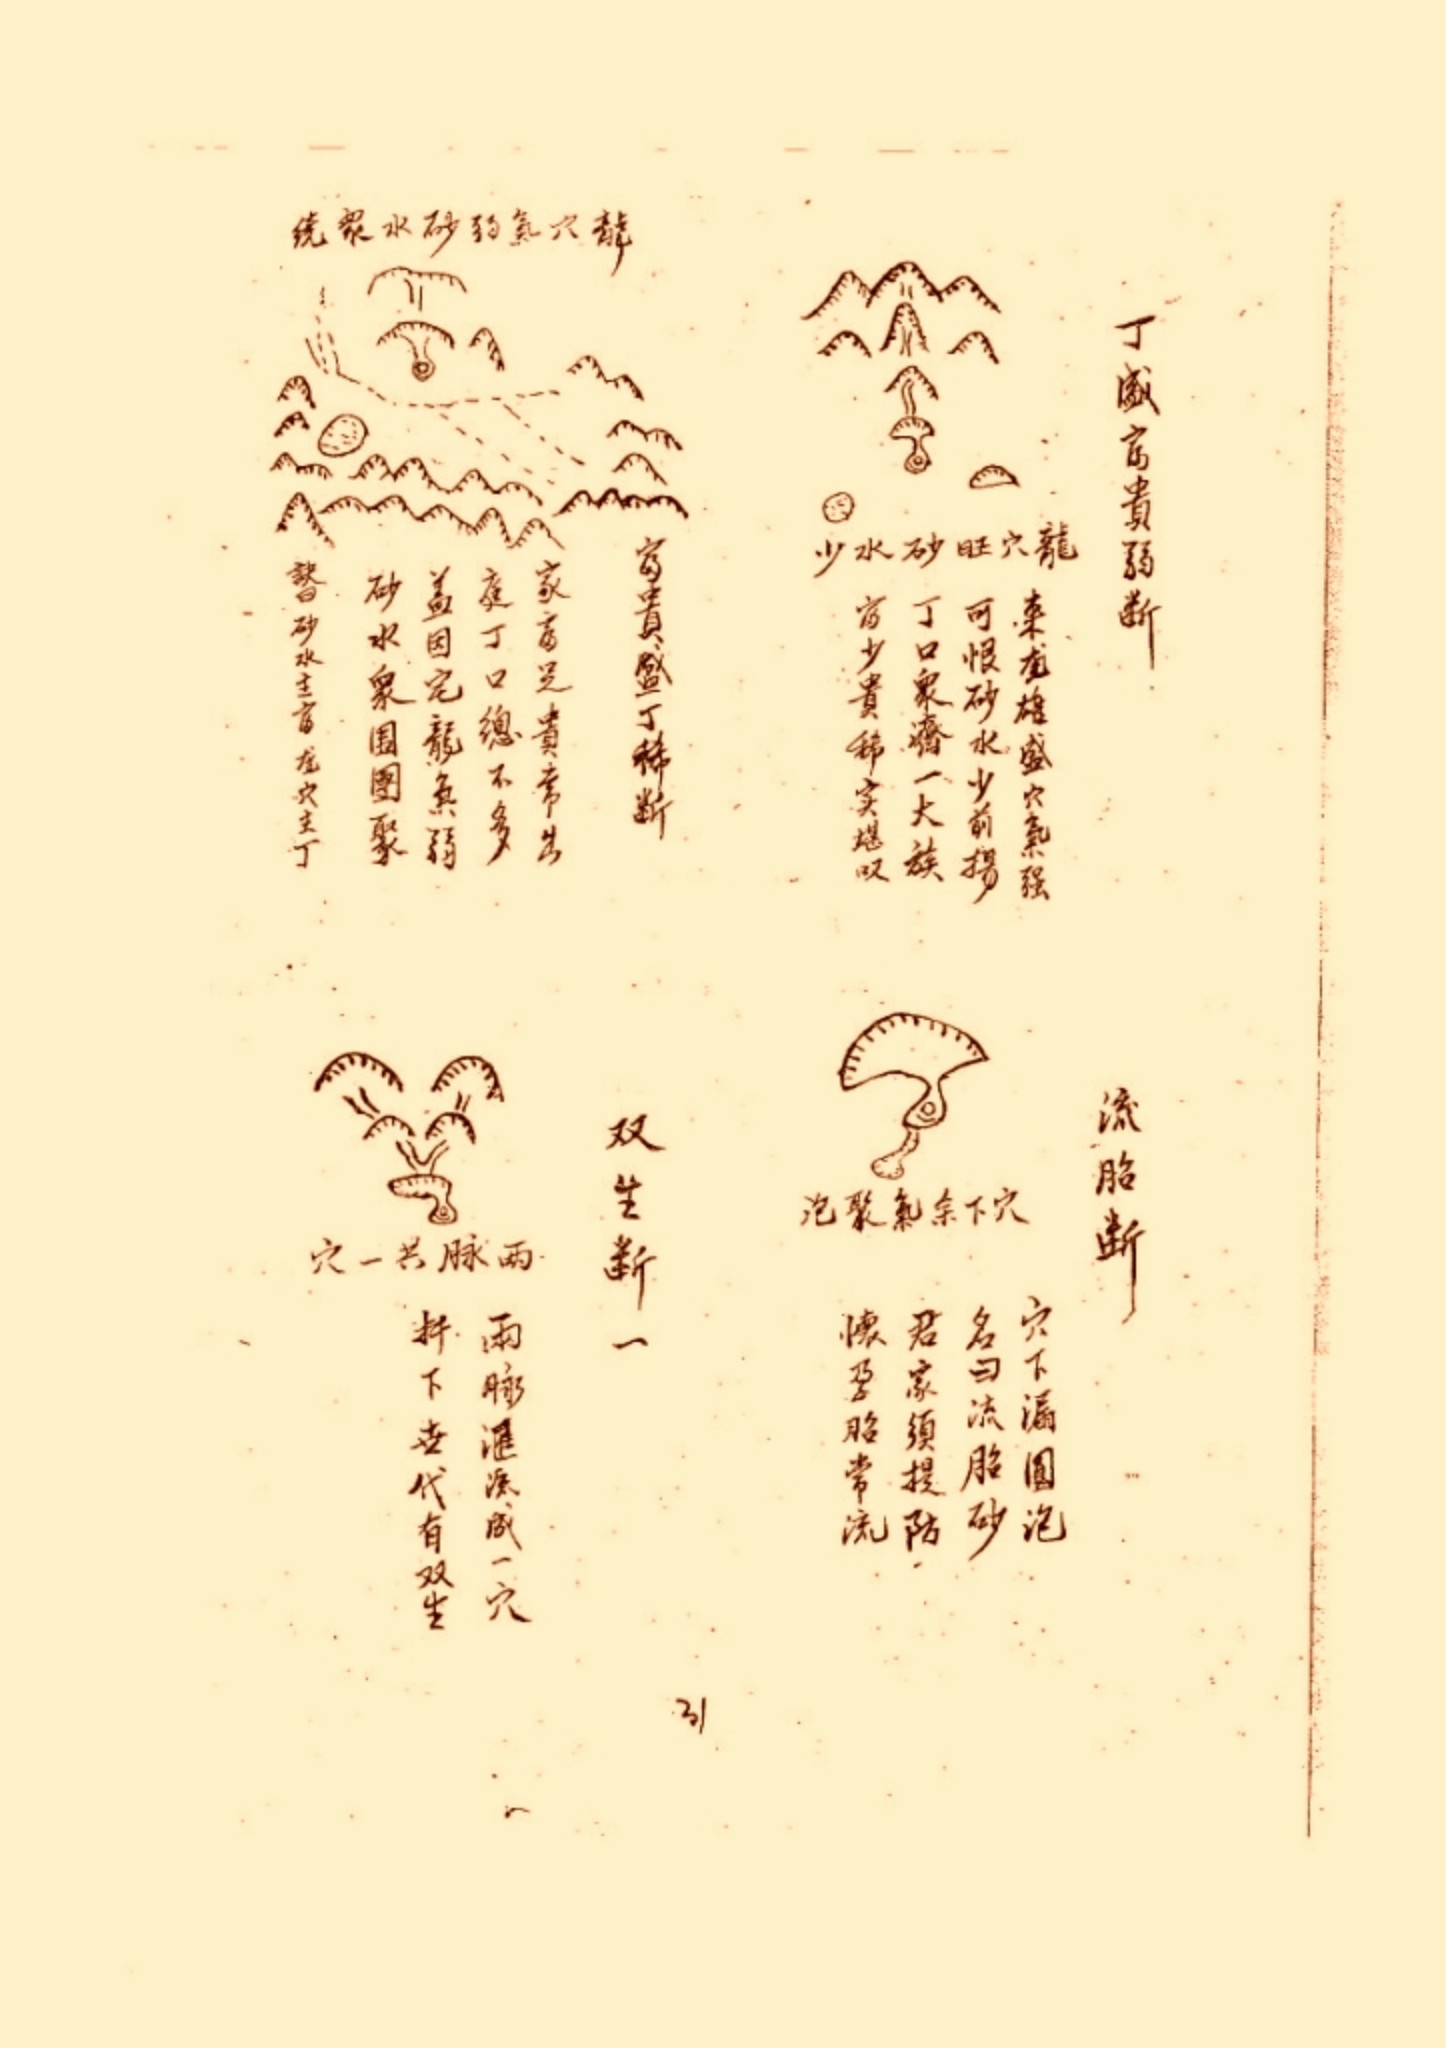 丁盛富貴弱断
少水砂旺穴龍
来龙雄盛穴氣强
可恨砂水少前揚
丁口衆濟一大族
富少貴稀实堪叹
繞衆水砂弱氣穴龍
富貴盛丁稀断
家富足貴常出
庭丁口總不多
盖因穴龍氣弱
砂水衆围團聚
訣曰砂水主富龙穴主丁
流胎断
泡聚氣余下穴
穴下漏圓泡
名曰流胎砂
君家須提防
懷孕胎常流
双生断一
穴一共脉兩
兩脉滙流成一穴
扦下世代有双生
31